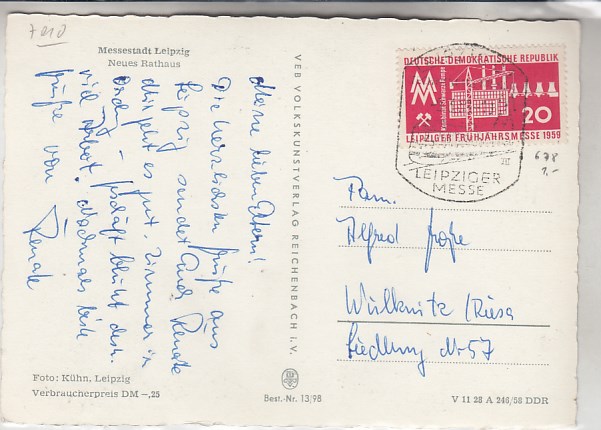 7010
Messestadt Leipzig
Neues Rathaus
Meine lieben Eltern!
Die herzlichsten Grüße aus
Leipzig sendet Euch Renate
Mir geht es gut, Zimmer in
Ordg. –
viel Arbeit. Nochmals liebe
Grüße von
Renate
Foto: Kühn, Leipzig
Verbraucherpreis DM –,25
VEB VOLKSKUNSTVERLAG REICHENBACH I.V.
Best.-Nr. 13/98
DEUTSCHE DEMOKRATISCHE REPUBLIK
MM
Kombinat Schwarze Pumpe
20
LEIPZIGER FRÜHJAHRSMESSE 1959
LEIPZIGER
MESSE
678
1.–
Fam.
Alfred Große
Wülknitz/Riesa
Siedlung Nr 57
V 11 28 A 246/58 DDR